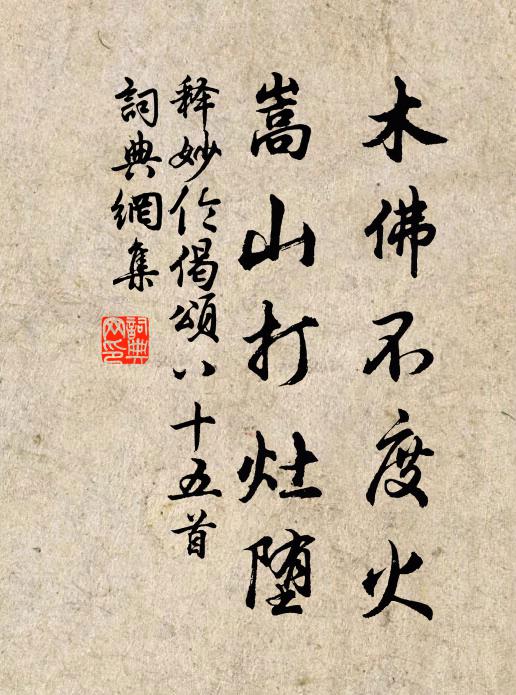 木佛不度火
嵩山打灶堕
释妙伦偈頌八十五首
詞典網集
詞典网印